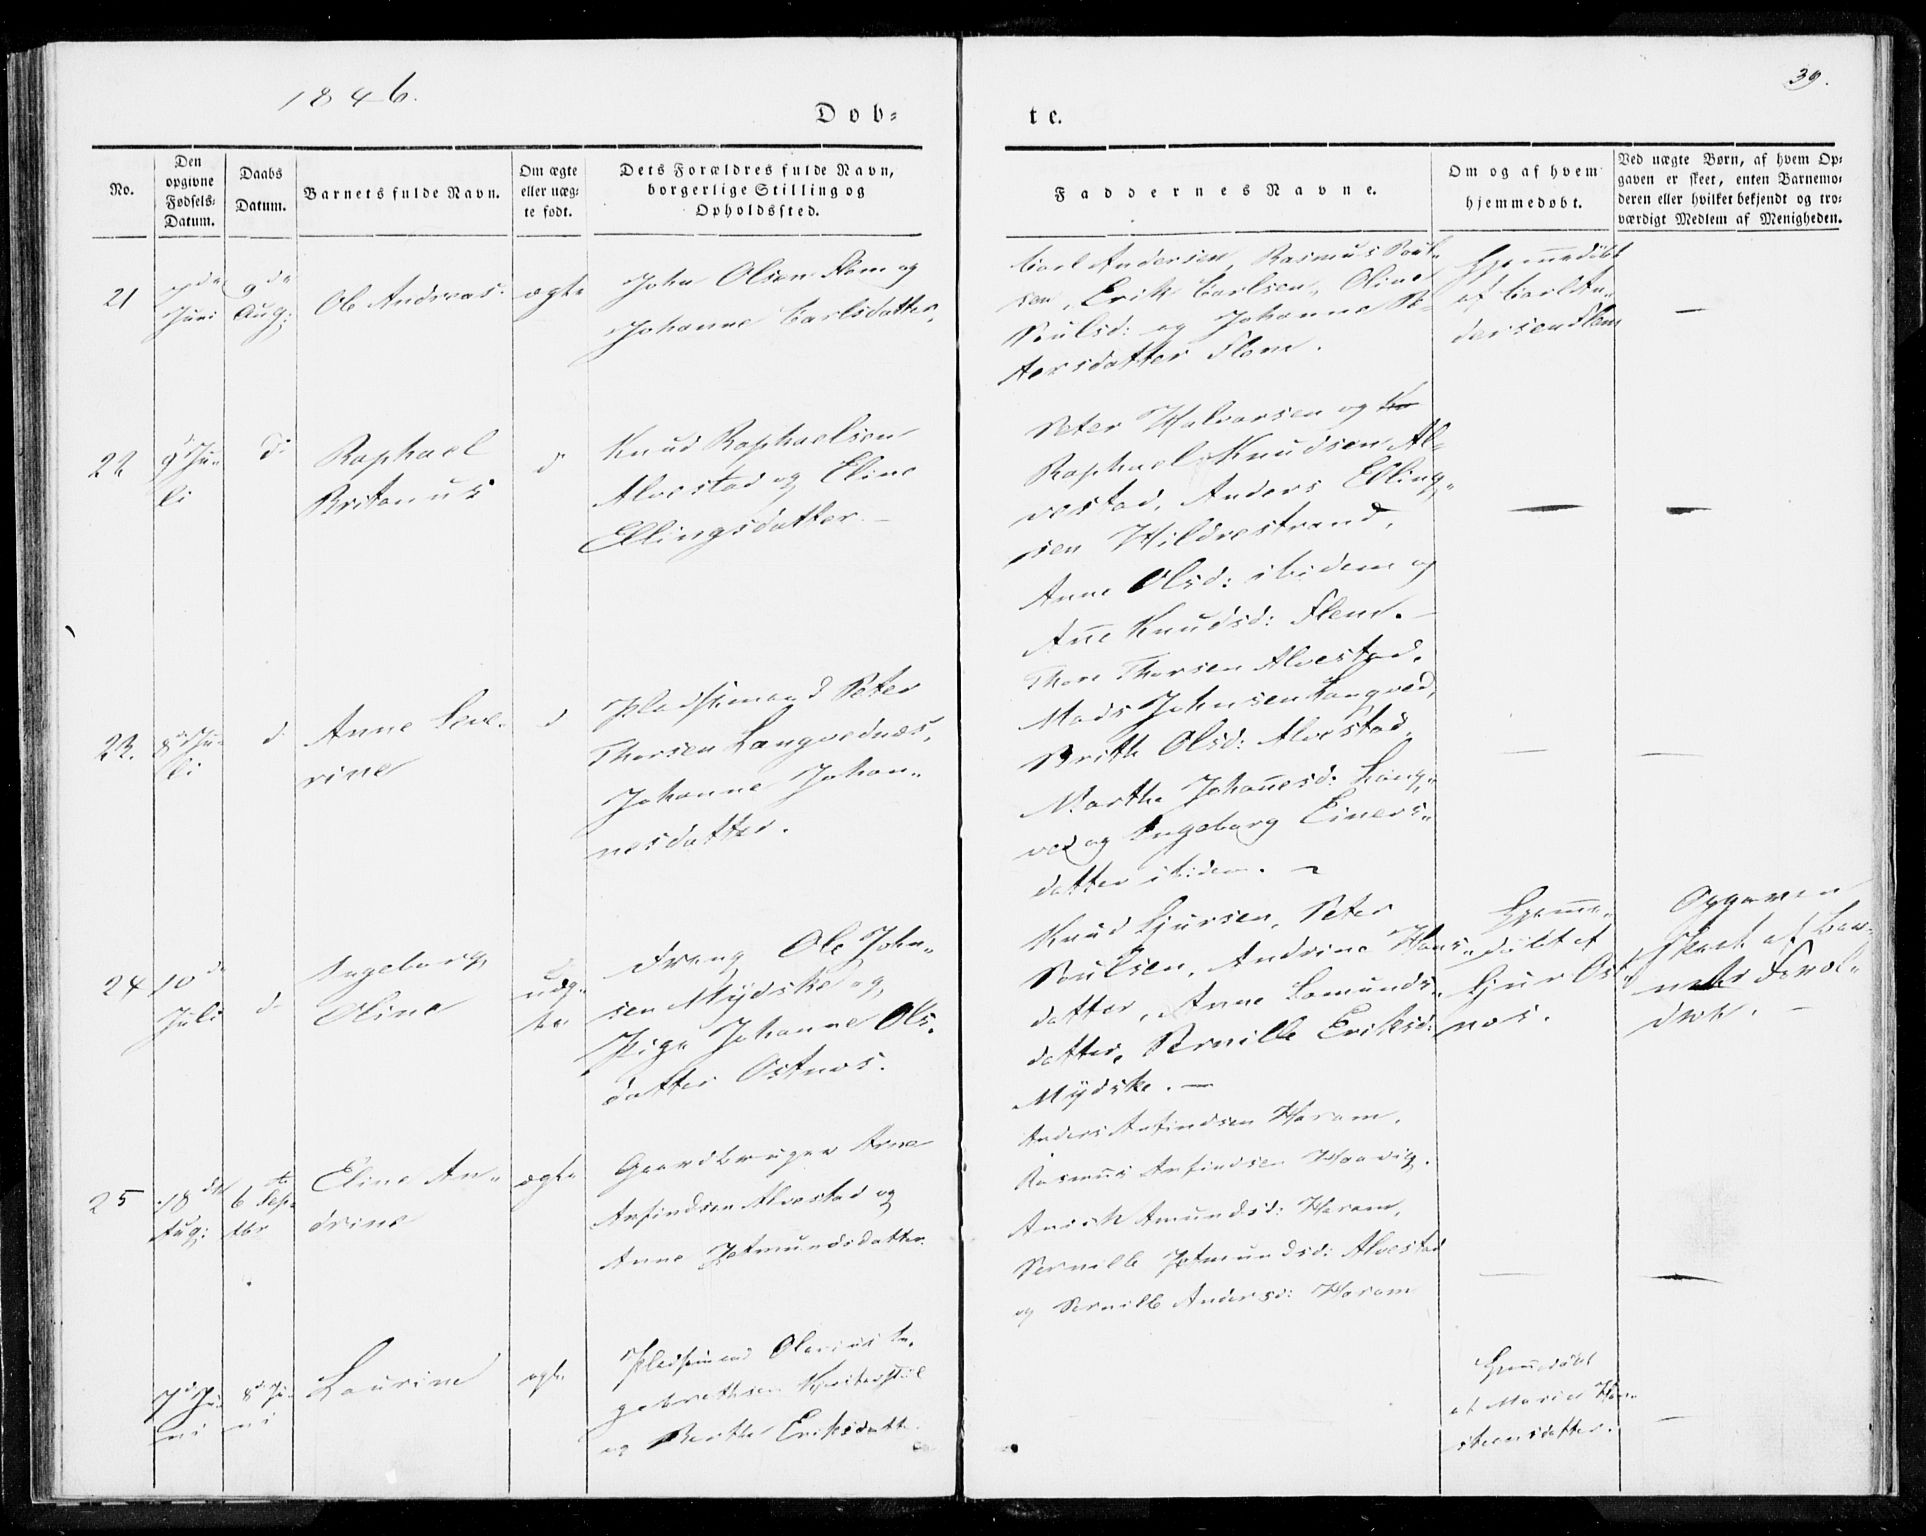 1846.
39.
Døb-
te.
No.
Den opgivne Fødsels-Datum.
Daabs Datum.
Barnets fulde Navn.
Om ægte eller uægte født.
Dets Forældres fulde Navn, borgerlige Stilling og Opholdssted.
Faddernes Navne.
Om og af hvem hjemmedøbt.
Ved uægte Børn, af hvem Opgaven er skeet, enten Barnemoderen eller hvilket bekjendt og troværdigt Medlem af Menigheden.
21
7de Juni
9de Aug:
Ole Andreas.
ægte
John Olsen Flem og
Johanne Carlsdatter.
Carl Andersen, Rasmus Poul-
sen, Erik Carlsen, Oline
Poulsd: og Johanne Pe-
tersdatter Flem.
Hjemmedöbt
af Carl An-
dersen Flem
—
22
9d Ju-
li
d:
Raphael
Britanus
d
Knud Raphaelsen
Alvestad og Eline
Ellingsdatter.—
Peter Halvorsen og
Raphael Knudsen Al-
vestad, Anders Elling-
sen Hildrestrand,
Anne Olsd: ibidem og
Añe Knudsd: Flem.—
—
—
23.
8d Ju-
li
d
Anne Seve-
rine
d
Pladsmand Peter
Thorsen Langvednæs,
Johanne Johan-
nesdatter.
Thore Thorsen Alvestad,
Mads Johnsen Langved,
Brith Olsd: Alvestad,
Marthe Johañesd: Lang-
ved og Ingeborg Einers-
datter ibidem. —
—
—
24
10de
Juli
d
Ingeborg
Oline
uæg-
te
Dreng Ole John-
sen Mydske og
Pige Johanne Ols-
datter Ostnæs.
Knud Sjursen, Peter
Poulsen, Andrine Hans-
datter, Anne Lomunds-
datter, Pernille Eriksd:
Mydske.—
Hjemme-
döbt af
Sjur Ost-
næs.
Opgaven
skeet af Bar-
nets Foræl-
dre.—
25
18de
Aug:
6te Sep-
tbr
Eline An-
drine
ægte
Gaardbruger Arne
Anfindsen Alvestad og
Anne Jetmundsdatter
Anders Anfindsen Haram,
Rasmus Anfindsen Haavig.
Amundsd: Haram,
Pernille Jetmundsd: Alvestad
og Pernille Andersd: Haram
—
—
7d Ju-
ni
8d Ju-
ni
Laurine
ægte
Pladsmand Olarius In-
gebrethsen
og Berthe Eriksdatte
Hjemmedöbt
af Maria
steensdatter.
—